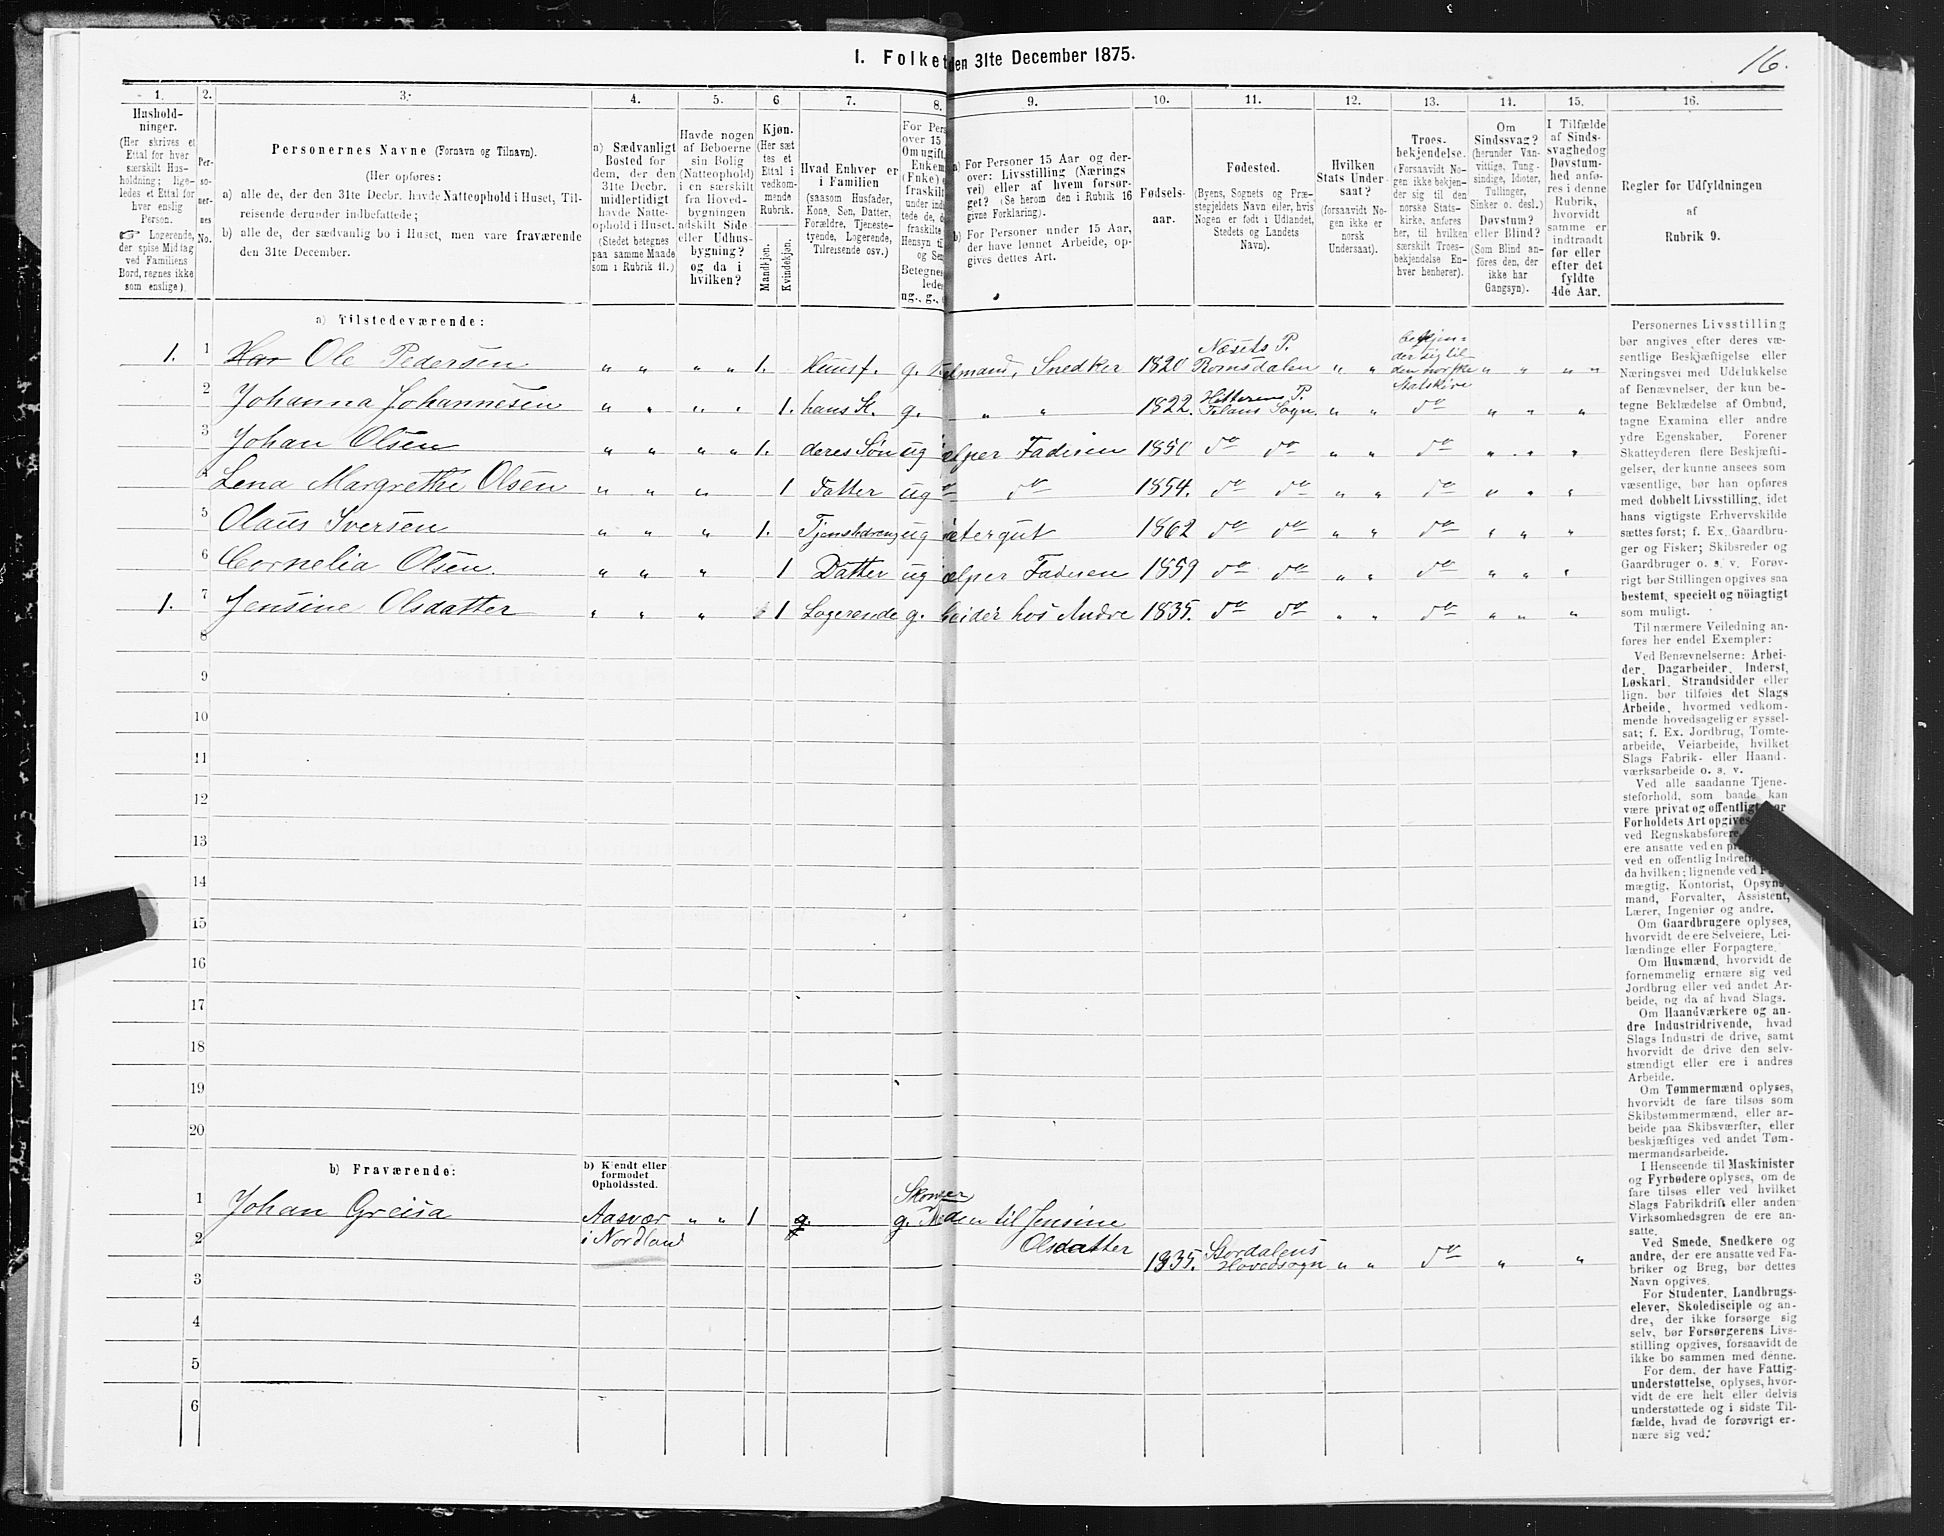 I. Folket den 31te December 1875.
16.
1.
2.
3.
4.
5.
6
7.
8.
9.
10.
11.
12.
13.
14.
15.
16.
Hushold-
ninger.
(Her skrives et
Ettal for hver
særskilt Hus-
holdning; lige-
ledes et Ettal for
hver enslig
Person.
☞ Logerende,
der spise Middag
ved Familiens
Bord, regnes ikke
som enslige).
Per-
so-
ner-
nes
No.
Personernes Navne (Fornavn og Tilnavn).
(Her opføres:
a) alle de, der den 31te Decbr. havde Natteophold i Huset, Til-
reisende derunder indbefattede;
b) alle de, der sædvanlig bo i Huset, men vare fraværende
den 31te December.
a) Sædvanligt
Bosted for
dem, der den
31te Decbr.
midlertidigt
havde Natte-
ophold i Huset.
(Stedet betegnes
paa samme Maade
som i Rubrik 11.)
Havde nogen
af Beboerne
sin Bolig
(Natteophold)
i en særskilt
fra Hoved-
bygningen
adskilt Side-
eller Udhus-
bygning?
og da i
hvilken?
Kjøn.
(Her sæt
tes et
Ettal i
vedkom-
mende
Rubrik.
Mandkjøn.
Kvindekjøn.
Hvad Enhver er
i Familien
(saasom Husfader,
Kone, Søn, Datter,
Forældre, Tjeneste-
tyende, Logerende,
Tilreisende osv.)
For Pers
over 15
Om ugift,
Enkem
(Enke) e
fraskil
under ind
tede de, d
fraskilte
Hensyn ti
og Se
Betegne
lede
ug., g.,
a) For Personer 15 Aar og der-
over: Livsstilling (Nærings
vei) eller af hvem forsør-
get? (Se herom den i Rubrik 16
givne Forklaring).
b) For Personer under 15 Aar,
der have lønnet Arbeide, op-
gives dettes Art.
Fødsels-
aar.
Fødested.
(Byens, Sognets og Præ-
stegjeldets Navn eller, hvis
Nogen er født i Udlandet,
Stedets og Landets
Navn).
Hvilken
Stats Under-
saat?
(forsaavidt No-
gen ikke er
norsk
Undersaat).
Troes-
bekjendelse.
(Forsaavidt No-
gen ikke bekjen-
der sig til den
norske Stats-
kirke, anføres
her, til hvilken
særskilt Troes-
bekjendelse En-
hver henhører).
Om
Sindssvag?
(herunder Van-
vittige, Tung-
sindige, Idioter,
Tullinger,
Sinker o. desl.)
Døvstum?
eller Blind?
(Som Blind an-
føres den, der
ikke har
Gangsyn).
I Tilfælde
af Sinds-
svaghed og
Døvstum-
hed anfø-
res i denne
Rubrik,
hvorvidt
samme er
indtraadt
før eller
efter det
fyldte
4de Aar.
Regler for Udfyldningen
af
Rubrik 9.
a) Tilstedeværende:
1. 1 Ole Pedersen " " " " 1. Huusf. g. lmand, Snedker 1820 Næsets P. Romsdalen " " bekjen-
der sig til
den norske
Statskirke " " " "
2 Johanna Johannesen " " " " 1. hans K. g. " " 1822. Hitterens P. Sogn. " " do " " "
3 Johan Olsen " " " " 1. deres Søn ug ælper Faderen 1850 do do " " do " " "
4 Lena Margrethe Olsen " " " 1 Datter ug do 1854. do do " " do " " "
5 Olaus Iversen " " " 1. Tjenstdreng ug ætergut 1862 do do " " do " " "
6 Cornelia Olsen. " " " 1 Datter ug ælper Faderen 1859 do do " " do " " "
1. 7 Jensine Olsdatter " " " 1 Logerende g. beider hos Andre 1835. do do " " do " " "
8
9
10
11
12
13
14
15
16
17
18
19
20
b) Fraværende:
b) Kjendt eller
formodet
Opholdssted.
1 Johan Greisa Aasvær " " 1 g. g. Skomager
Meden til Jensine
2 i Nordland Olsdatter 1835. Stordalens
Hovedsogn " " do " "
3
4
5
6
Personernes Livsstilling
bør angives efter deres væ-
sentlige Beskjæftigelse eller
Næringsvei med Udelukkelse
af Benævnelser, der kun be-
tegne Beklædelse af Ombud,
tagne Examina eller andre
ydre Egenskaber. Forener
Skatteyderen flere Beskjæfti-
gelser, der kunne ansees som
væsentlige, bør han opføres
med dobbelt Livsstilling, idet
hans vigtigste Erhvervskilde
sættes først; f. Ex. Gaardbru-
ger og Fisker; Skibsreder og
Gaardbruger o. s. v. Forøv-
rigt bør Stillingen opgives saa
bestemt, specielt og nöiagtigt
som muligt.
Til nærmere Veiledning an-
føres her endel Exempler:
Ved Benævnelserne: Arbei-
der, Dagarbeider, Inderst,
Løskarl, Strandsidder eller
lign. bør tilføies det Slags
Arbeide, hvormed vedkom-
mende hovedsagelig er syssel-
sat; f. Ex. Jordbrug, Tomte-
arbeide, Veiarbeide, hvilket
Slags Fabrik- eller Haand-
værksarbeide o. s. v.
Ved alle saadanne Tjene-
steforhold, som baade kan
være privat og offentligt, bør
Forholdets Art opgives
ved Regnskabsførere,
ere ansatte ved en
ved en offentlig
da hvilken; lignende ved
mægtig, Kontorist, Opsyns-
mand, Forvalter, Assistent,
Lærer, Ingeniør og andre.
Om Gaardbrugere oplyses,
hvorvidt de ere Selveiere, Lei-
lændinge eller Forpagtere.
Om Husmænd, hvorvidt de
fornemmelig ernære sig ved
Jordbrug eller ved andet Ar-
beide, og da af hvad Slags.
Om Haandværkere og an-
dre Industridrivende, hvad
Slags Industri de drive, samt
hvorvidt de drive den selv-
stændigt eller ere i andres
Arbeide.
Om Tømmermænd oplyses,
hvorvidt de fare tilsøs som
Skibstømmermænd, eller ar-
beide paa Skibsværfter, eller
beskjæftiges ved andet Tøm-
mermandsarbeide.
I Henseende til Maskinister
og Fyrbødere oplyses, om de
fare tilsøs eller ved hvilket
Slags Fabrikdrift eller anden
Virksomhedsgren de ere an-
satte.
Ved Smede, Snedkere og
andre, der ere ansatte ved Fa-
briker og Brug, bør dettes
Navn opgives.
For Studenter, Landbrugs-
elever, Skoledisciple og an-
dre, der ikke forsørge sig
selv, bør Forsørgerens Livs-
stilling opgives, forsaavidt de
ikke bo sammen med denne.
For dem, der have Fattig-
understøttelse, oplyses, hvor-
vidt de ere helt eller delvis
understøttede og i sidste Til-
fælde, hvad de forøvrigt er-
nære sig ved.